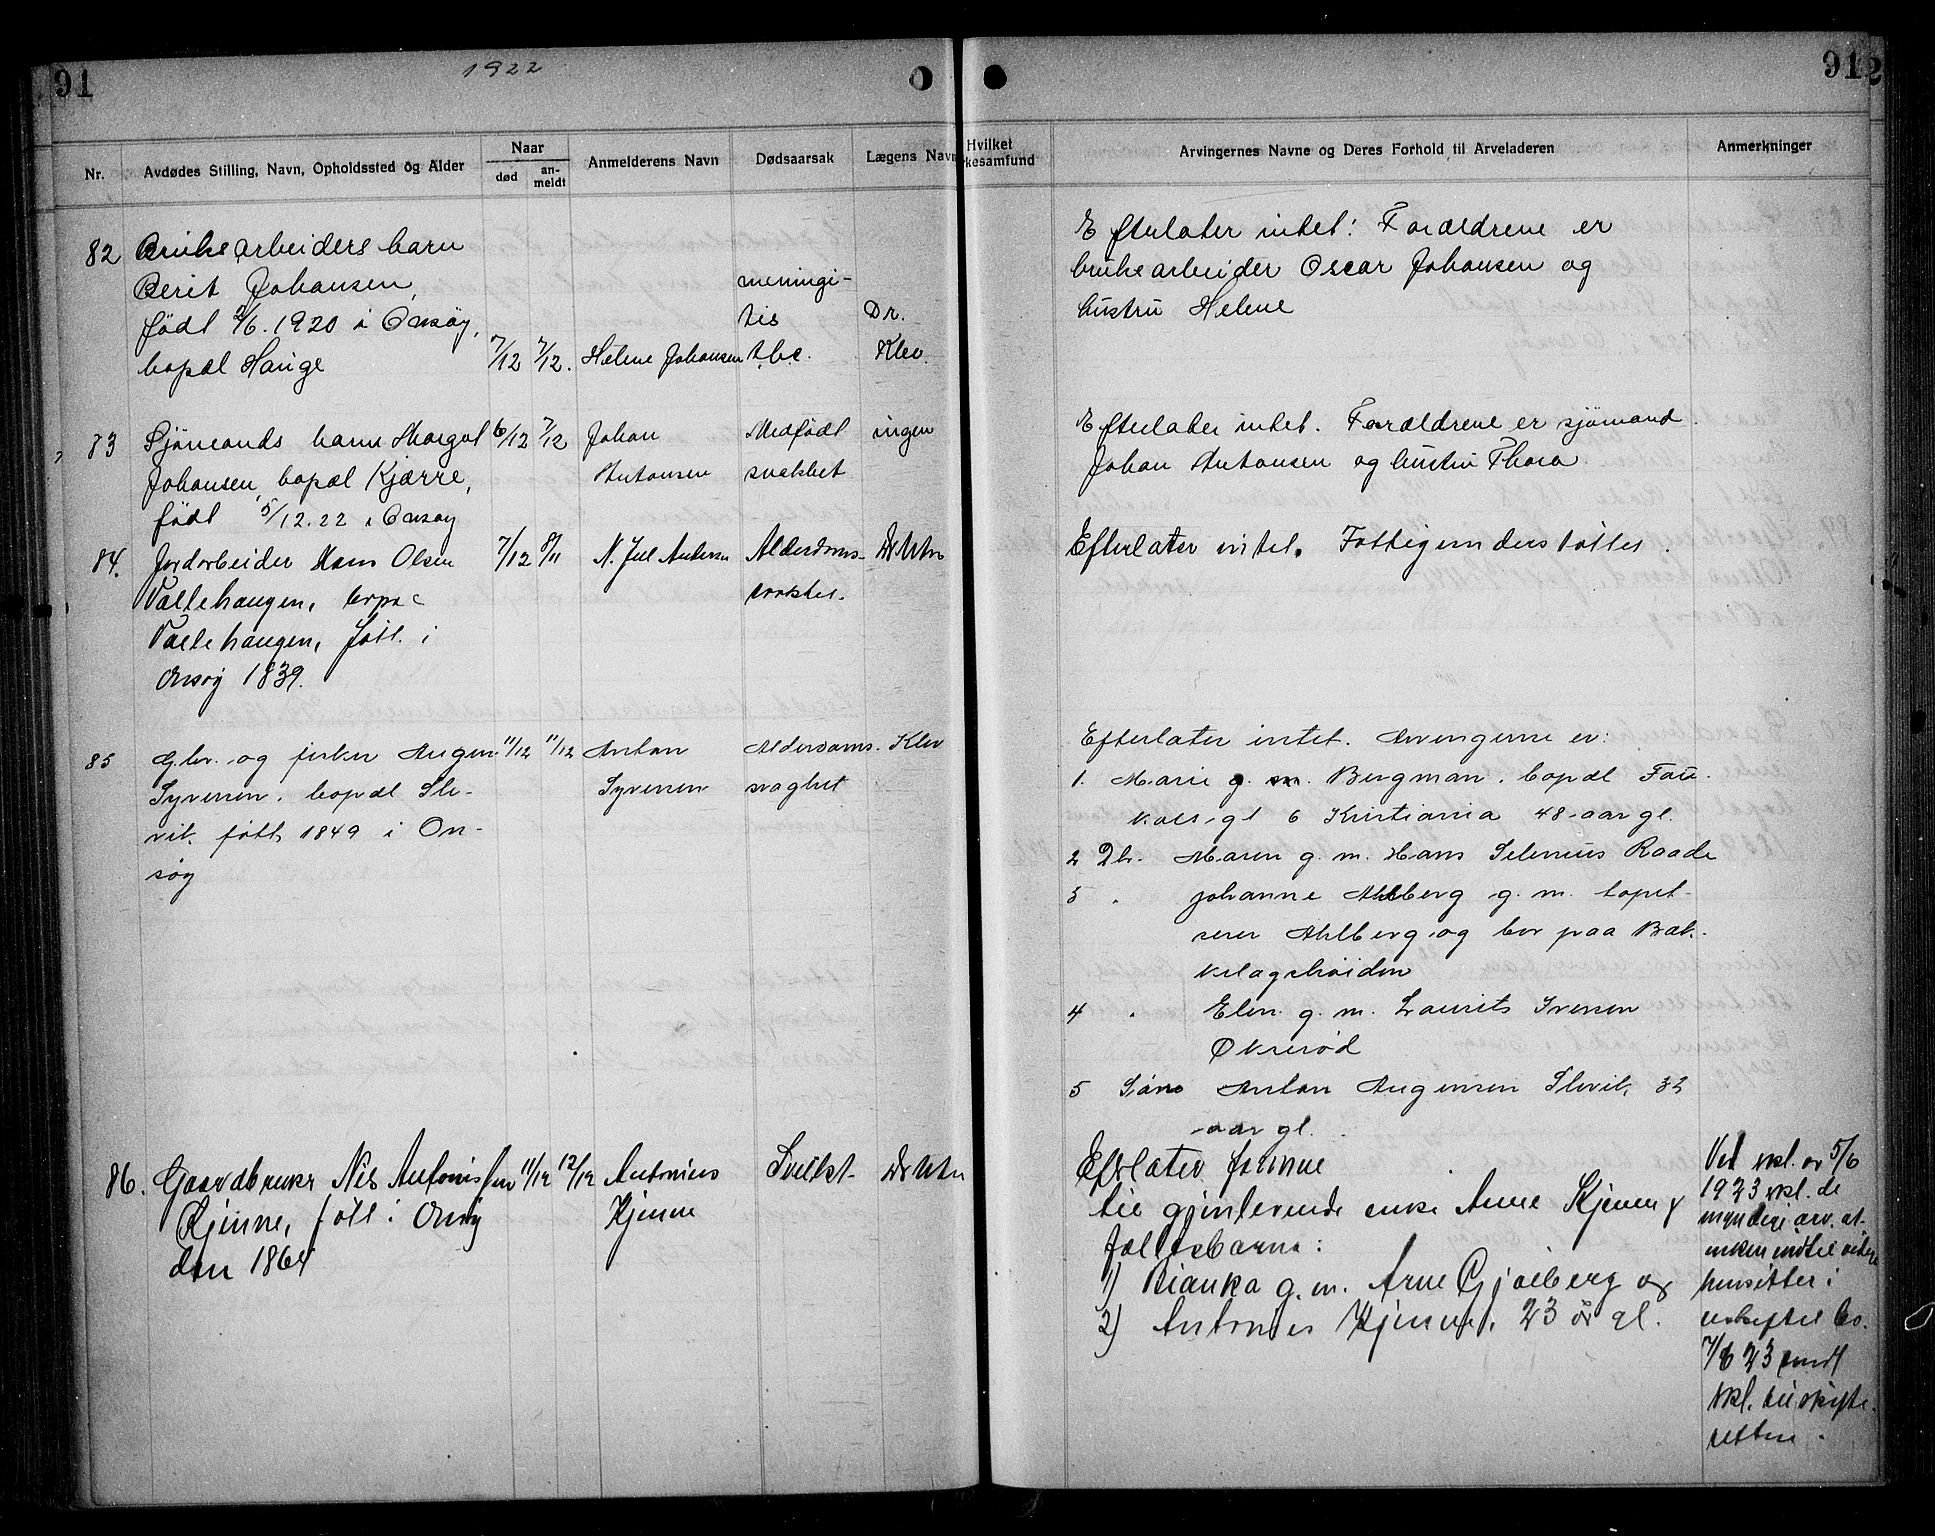 91
1922
912
Nr.
Avdødes Stilling, Navn, Opholdssted og Alder
Naar
død
an-
meldt
Anmelderens Navn
Dødsaarsak
Lægens Navn
Hvilket
kesamfund
Arvingernes Navne og Deres Forhold til Arveladeren
Anmerkninger
82 Bruksarbeiders barn
Berit Johansen,
født 2/6. 1920 i Onsøy,
bopæl Hauge
7/12 7/12. Helene Johansen
meningi-
tis
tbc.
Dr.
Klev.
Efterlater intet: Forældrene er
bruksarbeider Oscar Johansen og
hustru Helene
83 Sjømands barn Margot
Johansen, bopæl Kjærre,
født 5/12.22 i Onsøy
6/12 7/12 Johan
Antonsen
Medfødt
svakhet
ingen
Efterlater intet. Forældrene er sjømand
Johan Antonsen og hustru Thora
84. Jordarbeider Hans Olsen
Vallehaugen, bopæl
Vallehaugen, født i
Onsøy 1839.
7/12 8/11 N. Juel Andersen
Alderdoms-
svakhet.
Efterlater intet. Fattigunderstøttet.
85 Gbr. og fisker Augen
Syversen, bopæl Sle-
vik, født 1849 i On-
søy
11/12 11/12 Anton
Syversen
Alderdoms-
svaghet
Klev
Efterlater intet. Arvingerne er:
1. Marie g. m. Bergman, bopæl Fau-
kalsgt 6 Kristiania 48 aar gl.
2 Dt. Maren g. m. Hans Selenius Raade
3 " Johanne Ahlberg g. m. tapet-
serer Ahlberg og bor paa Bæk-
kelagshøiden
4 " Elen g. m. Laurits Iversen
Økserød
5 Søn Anton Augensen Slevik, 32
aar gl.
86. Gaardbruker Nils Antonissen
Kjenne, født i Onsøy
den 1864
11/12 12/12 Antonius
Kjenne
Efterlater formue
til gjenlevende enke Anne Kjenne &
fællesbarn:
1) Bianka g. m. Arne Gjølberg og
2) Antonius Kjenne, 23 år gl.
Ved skl. av 5/6
1923 skl. de
myndige arv. at
enken indtil videre
hensitter i
uskiftet bo.
7/6 23 sendt
skl. til skifte-
retten.